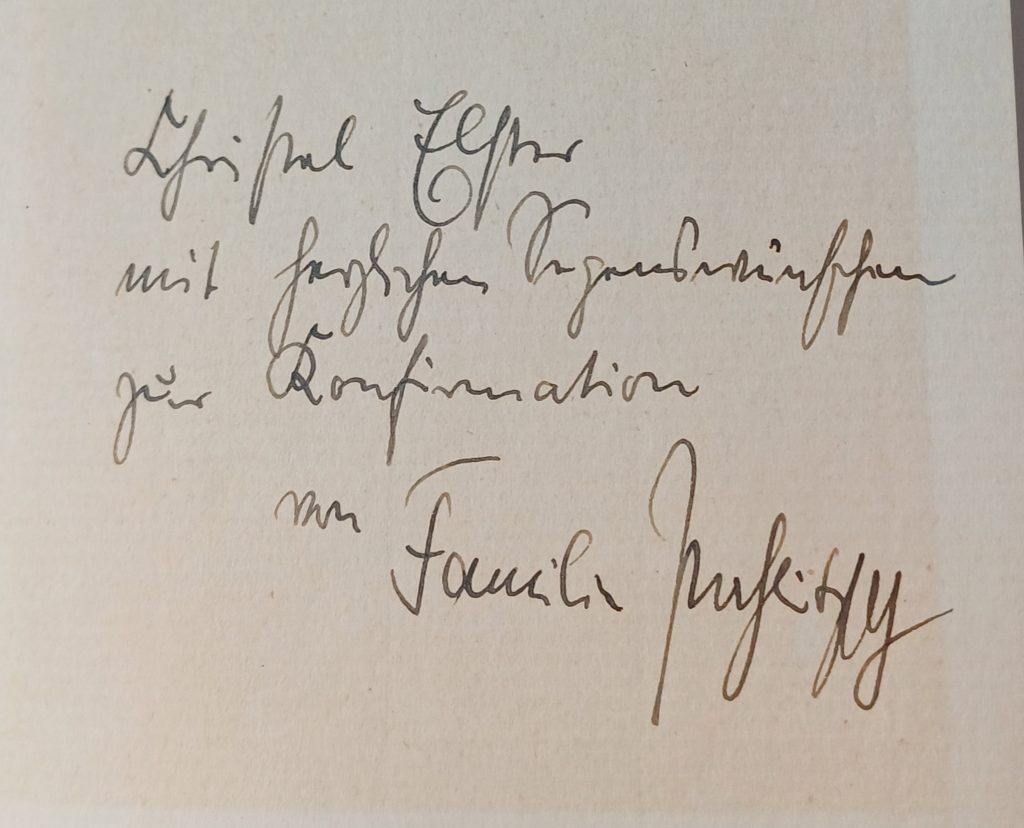 Christal Elster
mit herzlichen Segenswünschen
zur Konfirmation
von Familie